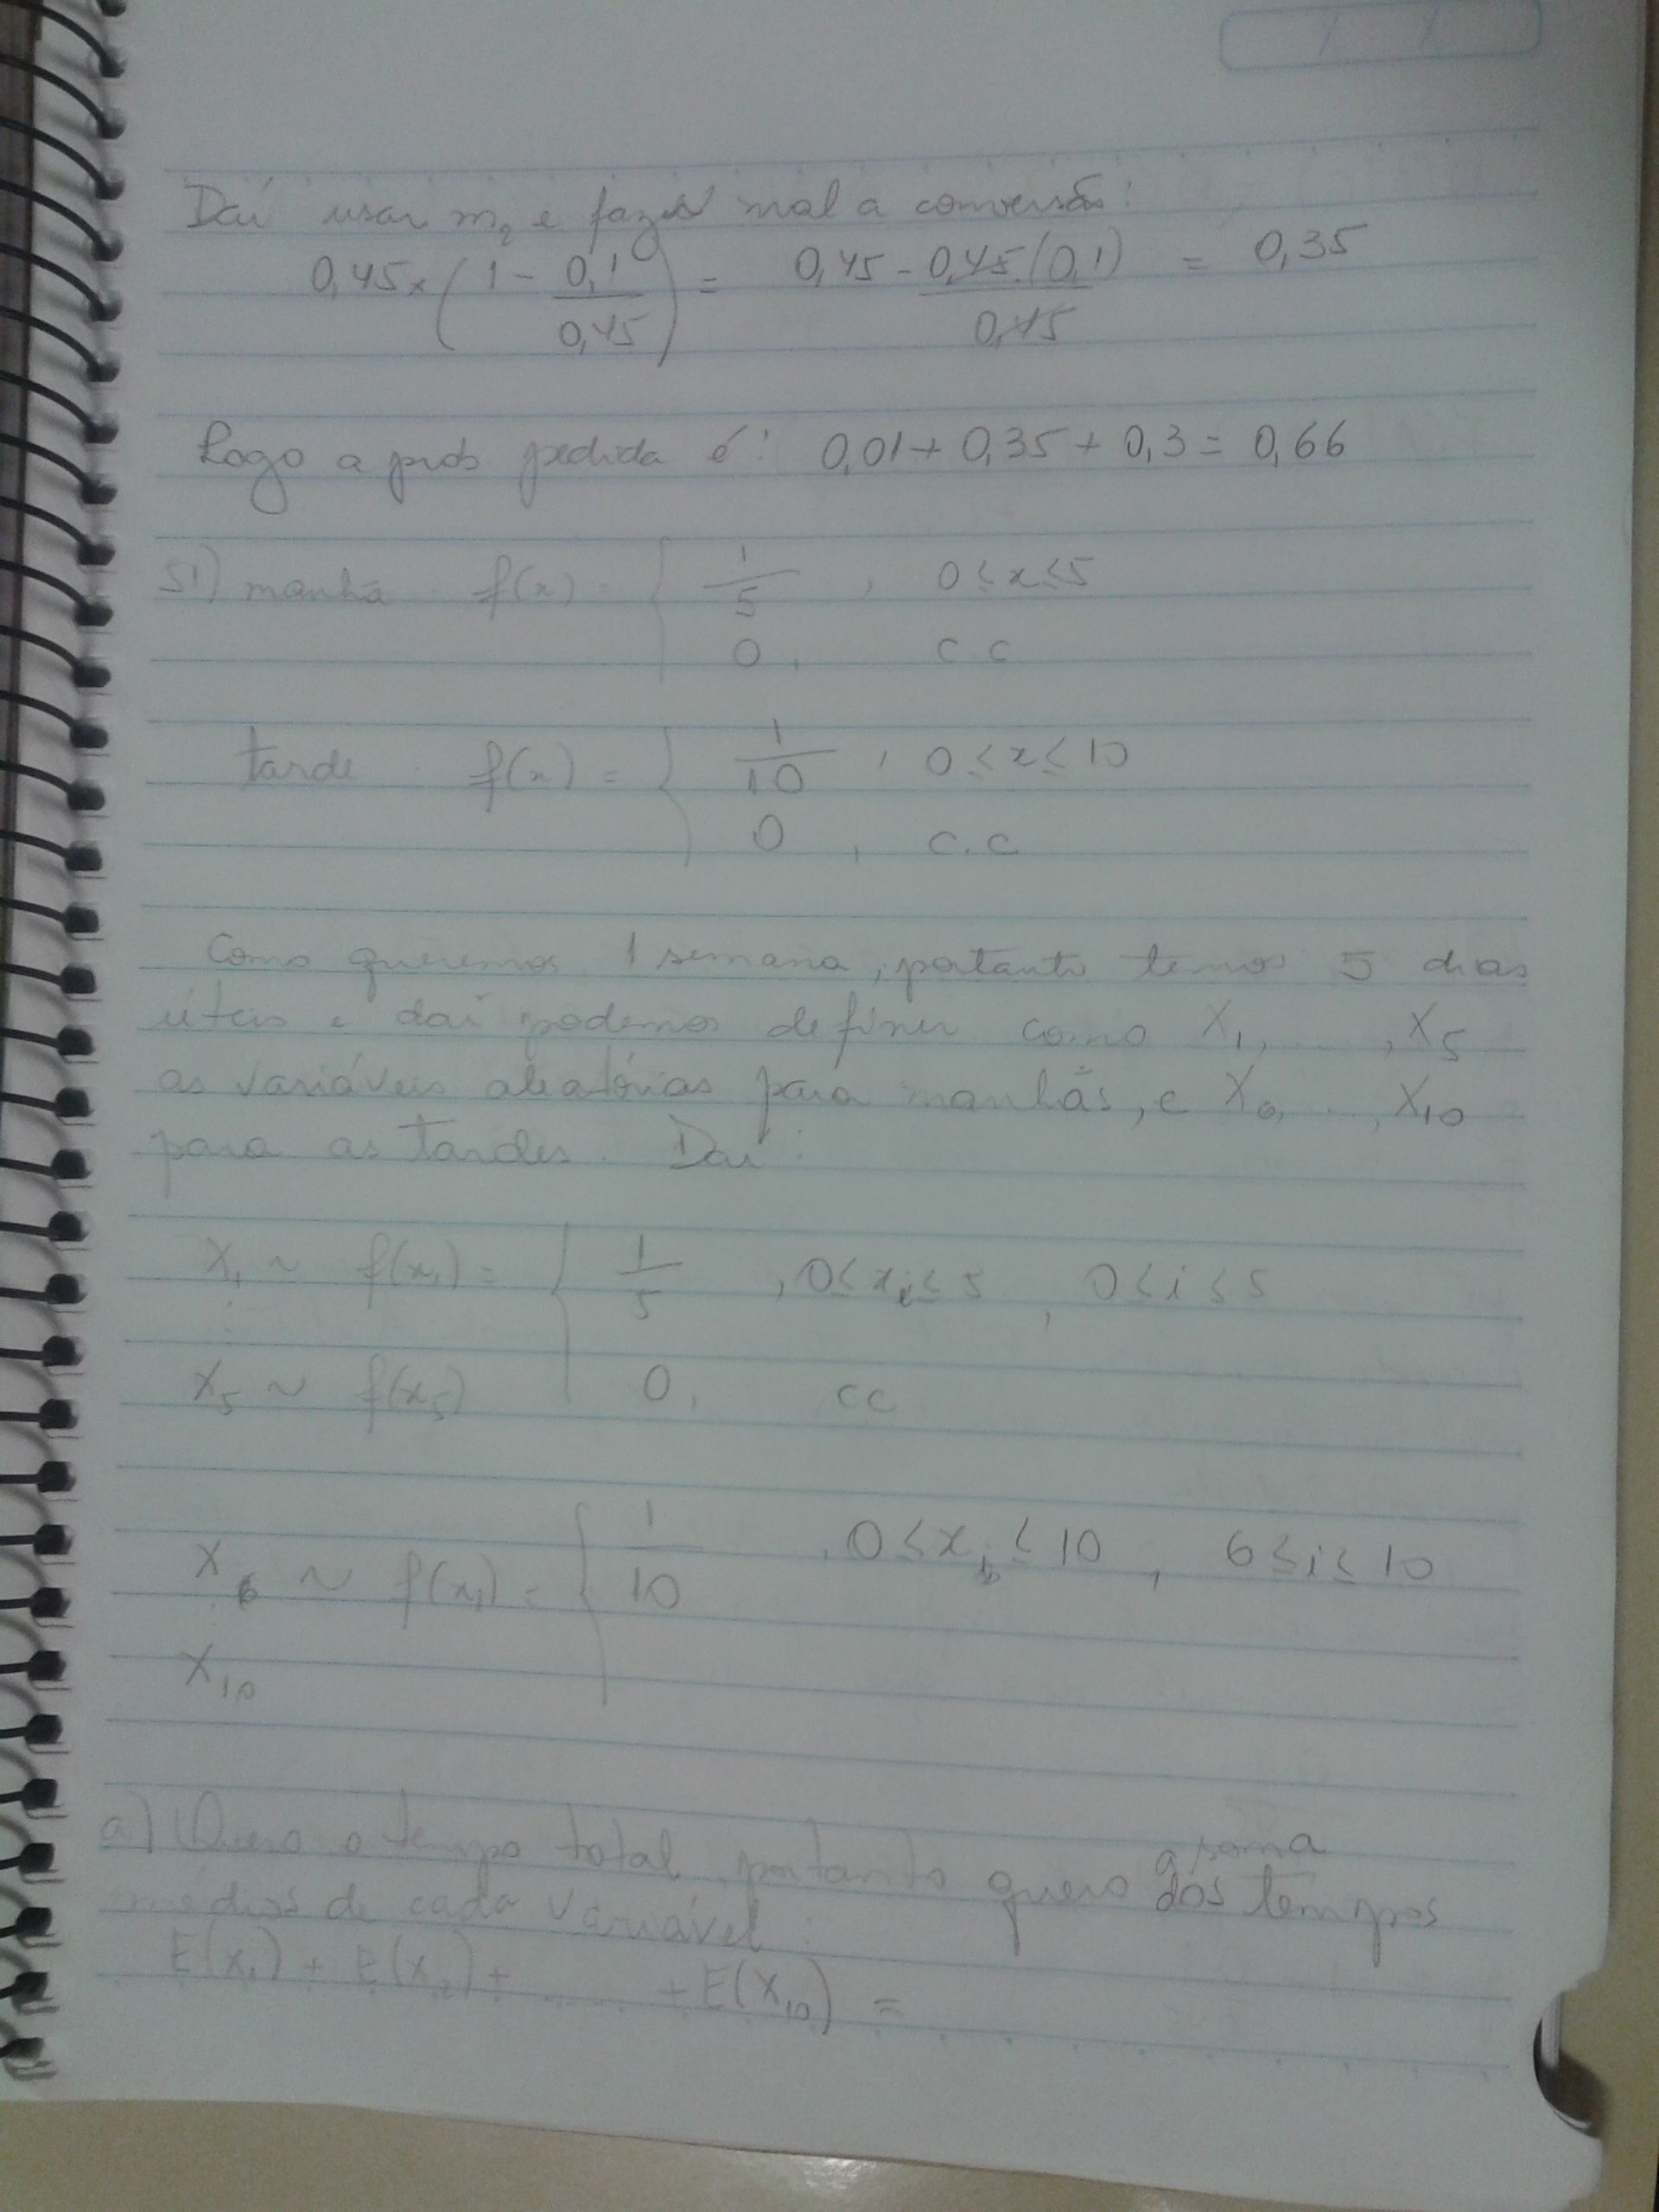 Daí usar m₂ e fazer mal a conversão:
0,45 × (1 - 0,1/0,45) = 0,45 - 0,45.(0,1)/0,45 = 0,35
Logo a prob pedida é: 0,01 + 0,35 + 0,3 = 0,66
51) manhã f(x) = { 1/5 , 0 ≤ x ≤ 5
0 , c.c
tarde f(x) = { 1/10 , 0 ≤ x ≤ 10
0 , c.c
Como queremos 1 semana, portanto temos 5 dias
úteis e daí podemos definir como X₁, ..., X₅
as variáveis aleatórias para manhãs, e X₆, ..., X₁₀
para as tardes. Daí:
X₁ ~ f(x₁) = { 1/5 , 0 ≤ xᵢ ≤ 5 , 0 ≤ i ≤ 5
X₅ ~ f(x₅) 0 , cc
X₆ ~ f(x₁) = { 1/10 , 0 ≤ xᵢ ≤ 10 , 6 ≤ i ≤ 10
X₁₀
a) Quero o tempo total, portanto quero a soma dos tempos
médios de cada variável:
E(X₁) + E(X₂) + ..... + E(X₁₀) =